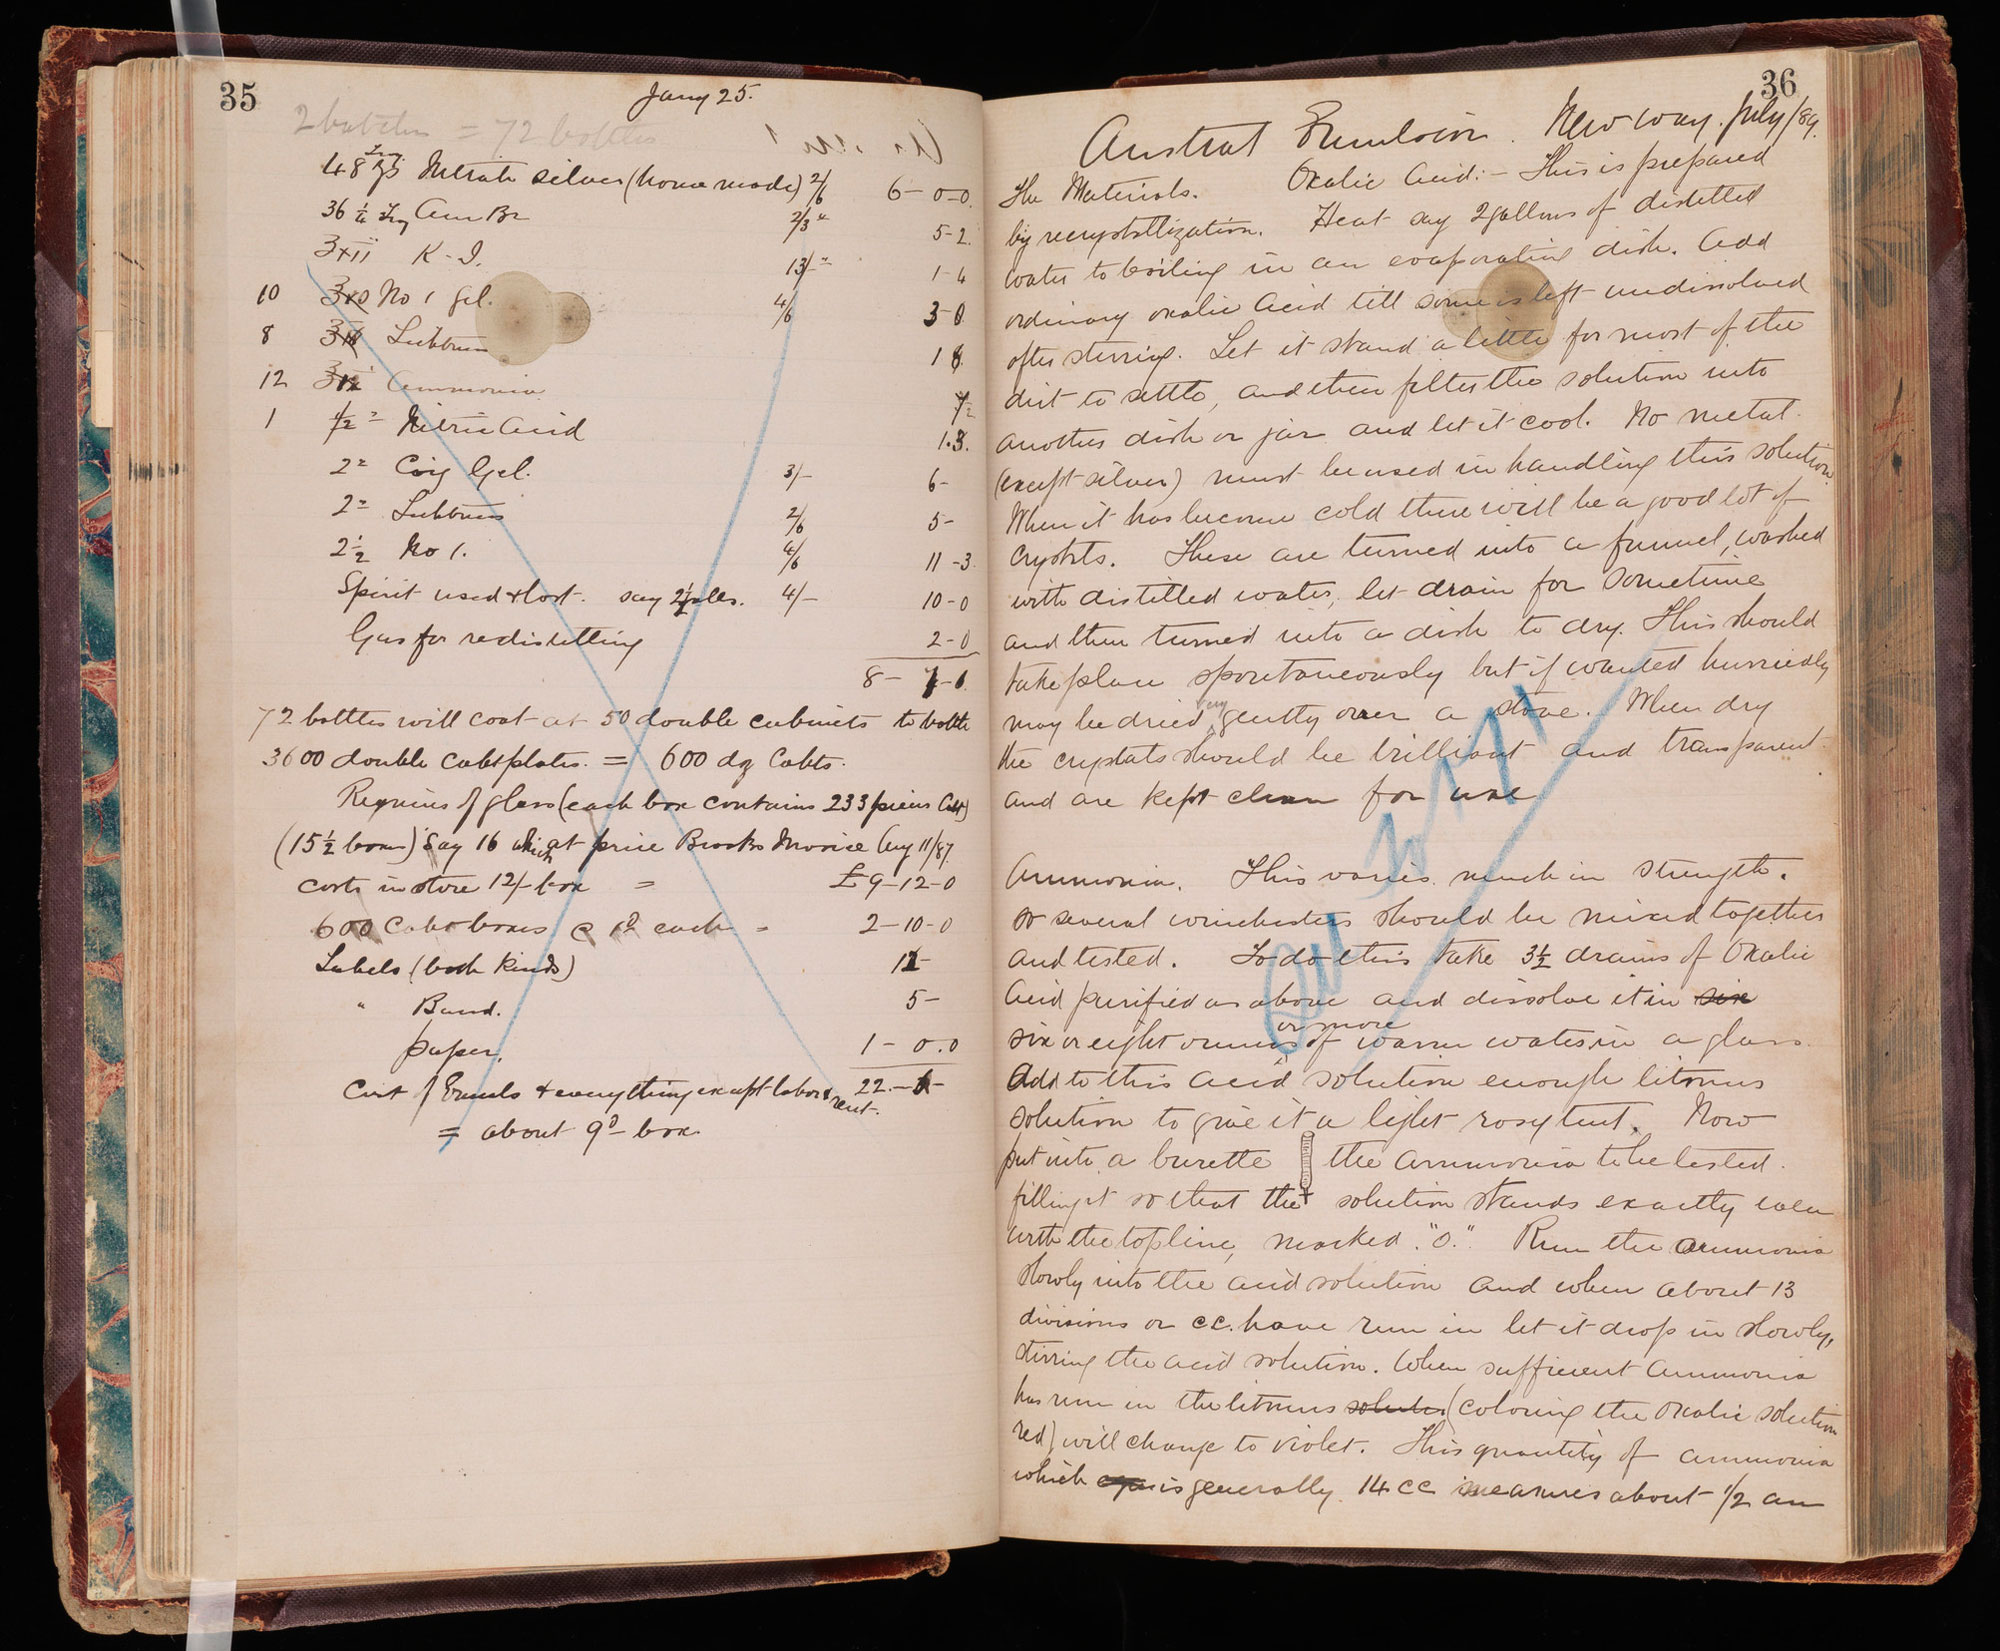 35
Jany 25.
2 batches = 72 bottles
48 Nitrate silver (home made) 2/6 6-0-0
36 1/4 Am Br 2/3 " 5-2
℥xii K-I. 13/- " 1-4
10 No 1 Gel. 4/6 3-0
8 1
12 Ammonia
1 1/2 " Nitric Acid 1.3.
2 " Coig Gel. 3/- 6-
2 " 2/6 5-
2 1/2 No 1. 4/6 11-3
Spirit used & lost. say 2 1/2 galls. 4/- 10-0
Gas for redistilling 2-0
8-
72 bottles will coat at 50 double cabinets to bottle
3600 double cabt plates. = 600 dz Cabts.
Requires of glass (each box contains 233 pieces Cabt)
(15 1/2 boxes) Say 16 which at price Brooks Aug 11/87.
costs in store 12/- box = £9-12-0
600 Cabt boxes @ 1d each = 2-10-0
Labels (both kinds)
" Band. 5-
paper. 1-0.0
Cost of Emuls & everything except labor & rent. 22.-
= about 9d box.
36
Austral Emulsion. New way. July/89.
The Materials. Oxalic Acid:- This is prepared
by recrystallization. Heat say 2 gallons of distilled
water to boiling in an evaporating dish. Add
ordinary oxalic acid till some is left undissolved
after stirring. Let it stand a little for most of the
dirt to settle, and then filter the solution into
another dish or jar and let it cool. No metal
(except silver) must be used in handling this solution
When it has become cold there will be a good lot of
crystals. These are turned into a funnel, washed
with distilled water, let drain for sometime
and then turned into a dish to dry. This should
take place spontaneously but if wanted hurriedly
may be dried very gently over a stove. When dry
the crystals should be brilliant and transparent
and are kept clean for use
Ammonia. This varies much in strength.
so several winchesters should be mixed together
and tested. To do this take 3 1/2 drams of Oxalic
Acid purified as above and dissolve it in six
six or eight ounces or more of warm water in a glass.
Add to this acid solution enough litmus
solution to give it a light rosy tint. Now
put into a burette the ammonia to be tested.
filling it so that the solution stands exactly even
with the top line, marked "0." Run the ammonia
slowly into the acid solution and when about 13
divisions or cc. have run in let it drop in slowly,
stirring the acid solution. When sufficient Ammonia
has run in the litmus (coloring the oxalic solution
red) will change to violet. This quantity of ammonia
which is generally 14 cc measures about 1/2 an